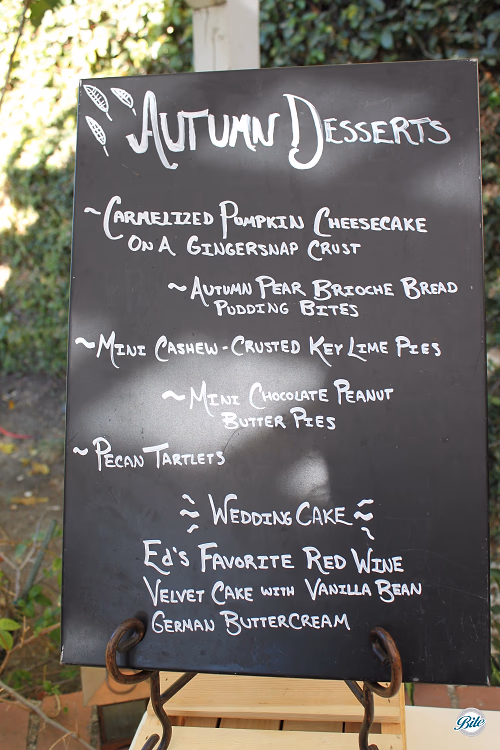 Autumn Desserts
~Carmelized Pompkin Cheesecake
on a Gingersnap Crust
~Autumn Pear Brioche Bread
Pudding Bites
~Mini Cashew-Crusted Key Lime Pies
~Mini Chocolate Peanut
Butter Pies
~Pecan Tartlets
Wedding Cake
Ed's Favorite Red Wine
Velvet Cake with Vanilla Bean
German Buttercream
Bite